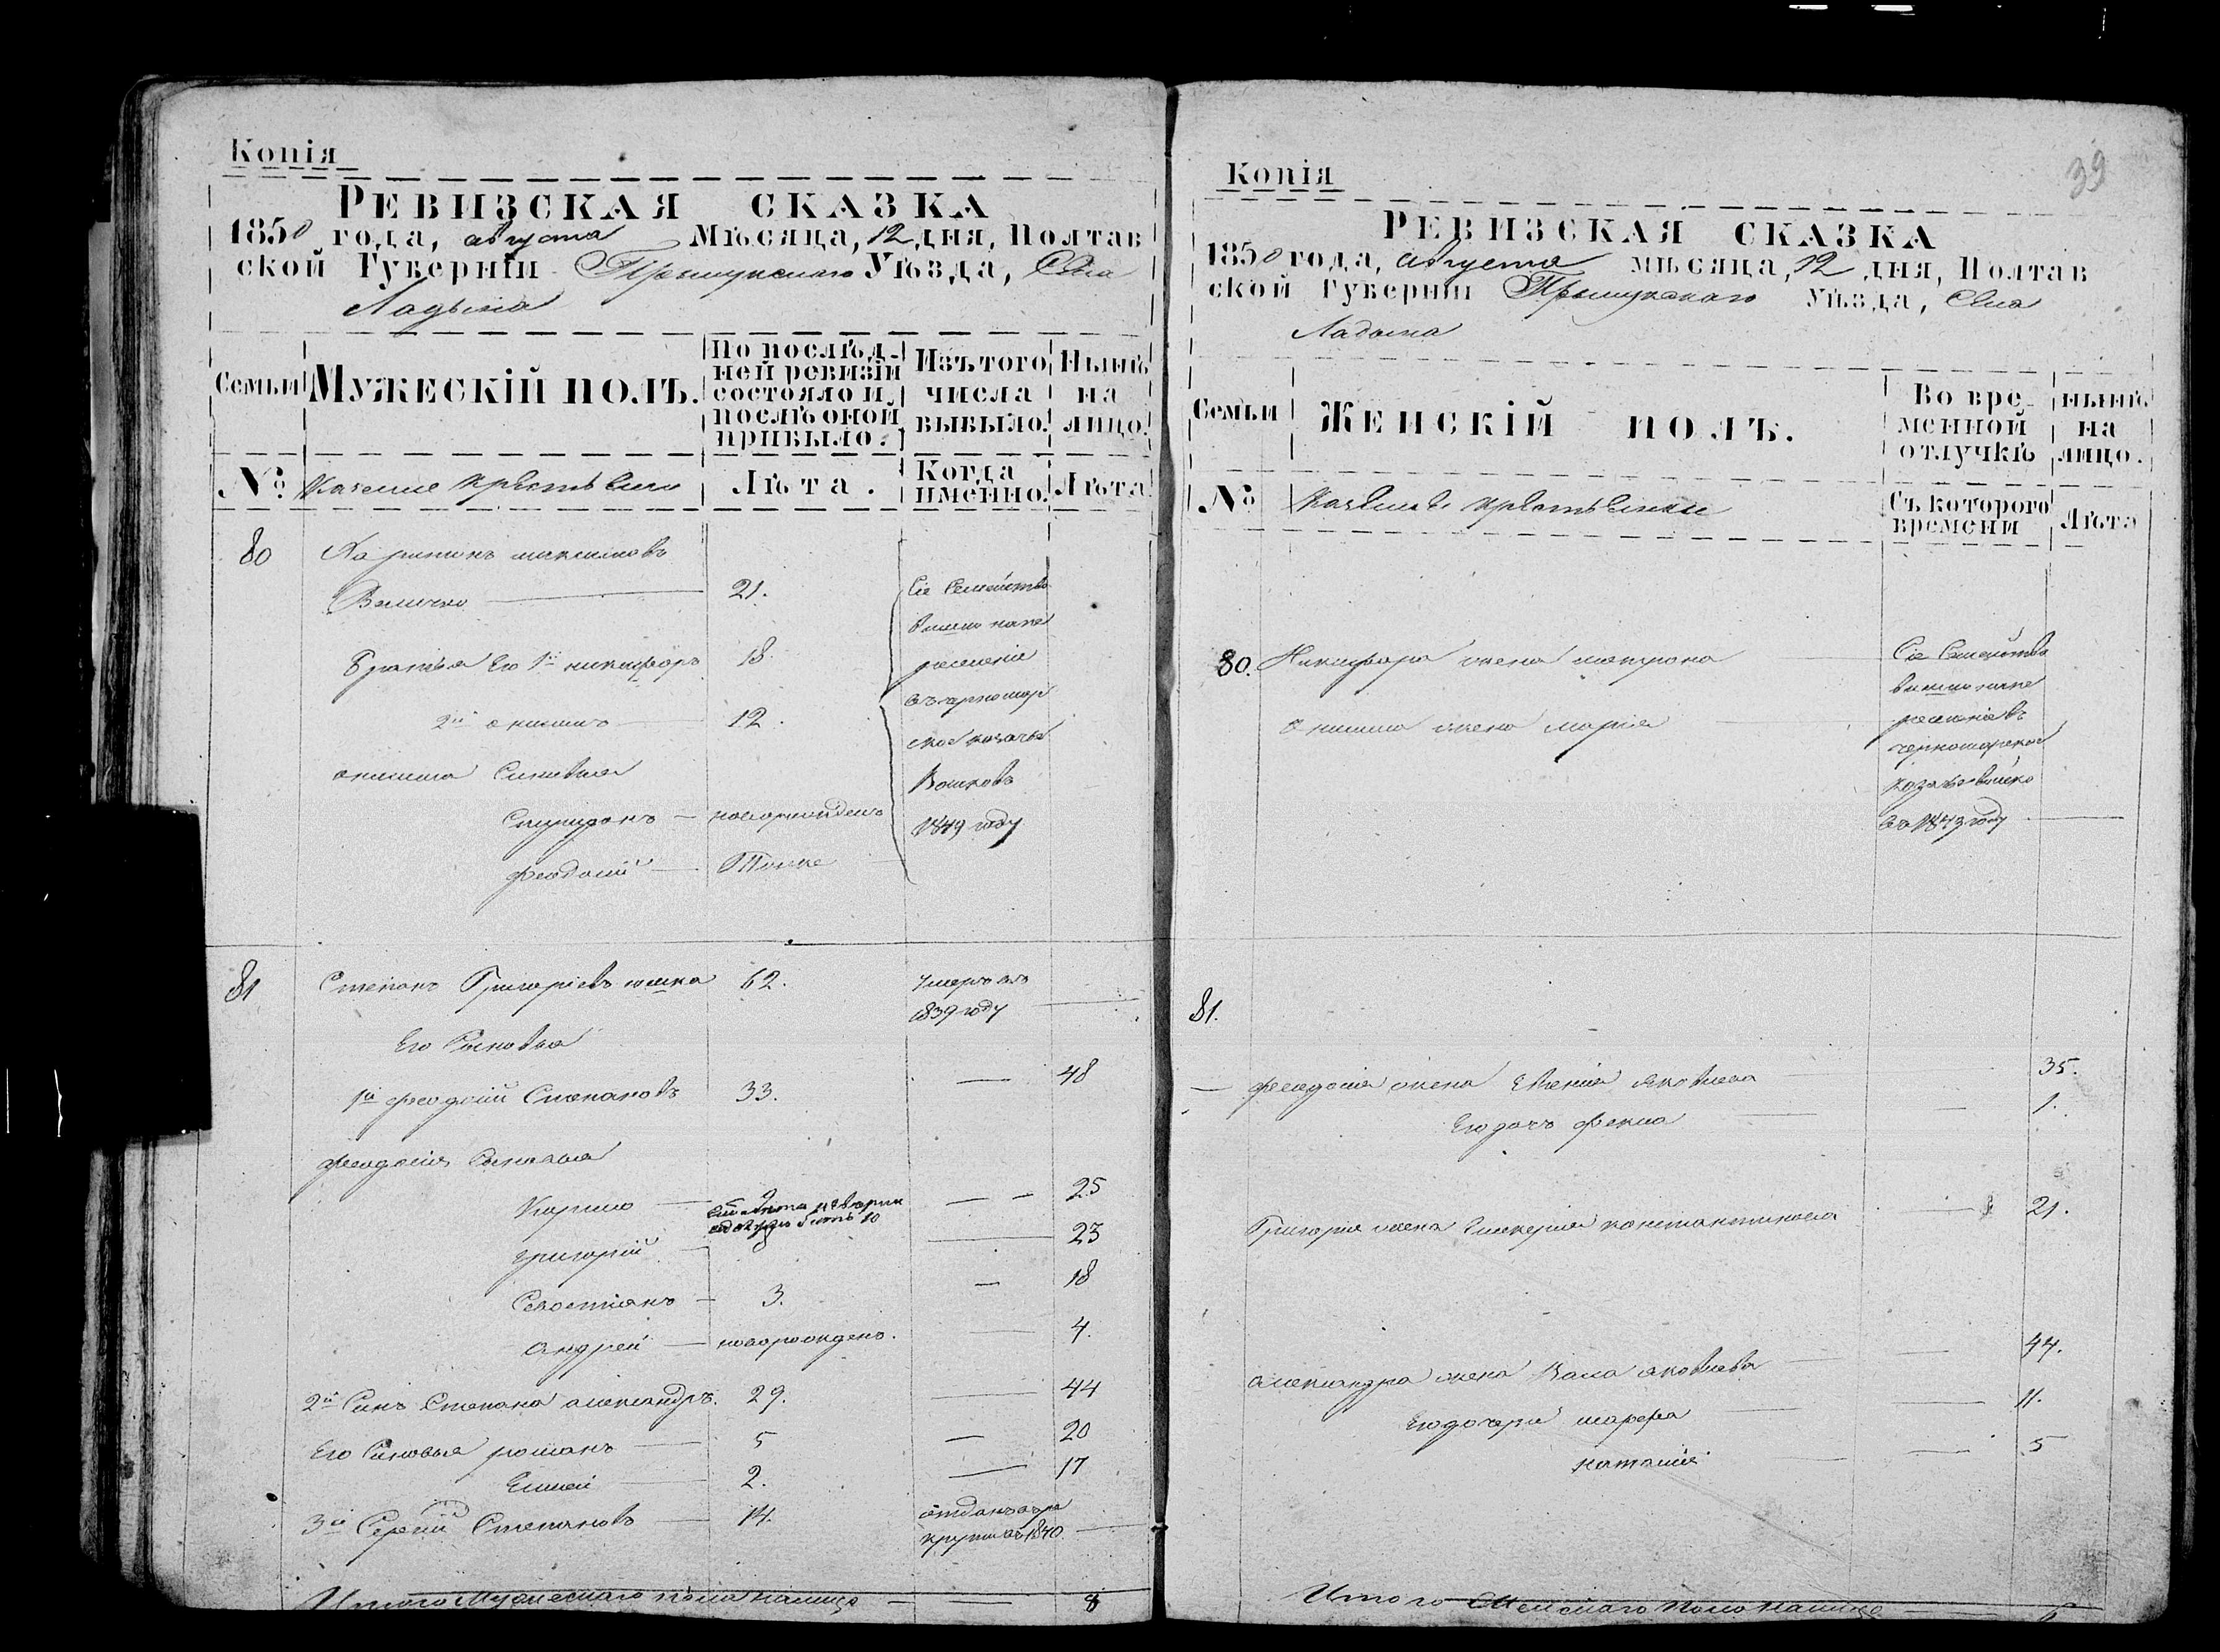 Копія
РЕВИЗСКАЯ СКАЗКА
1850 года, августа Мѣсяца, 12 дня, Полтав
ской Губерніи Прилуцкаго Уѣзда, Села
Ладына
Семьи
МУЖЕСКІЙ ПОЛЪ.
По послѣд-
ней ревизіи
состояло и
послѣ оной
прибыло.
Изъ того
числа
выбыло.
Нынѣ
на
лицо.
№
Казенные крестьяне
Лѣта.
Когда
именно.
Лѣта.
80 Харитонъ максимовъ
Величко 21.
Сіе Семейство
вишло на пе
реселеніе
въ черномор
ское козачье
Войско въ
1849 году
Братья Его 1й никифоръ 18.
2й онисимъ 12.
онисима Синовья
Спиридонъ новорожденъ
феодосий Тоже
81 Степанъ Григоріевъ 62. умеръ въ
1839 году
Его Сыновья
1й феодосий Степановъ 33. 48
феодосия Сыновья
Кирило 25
григорий 23
Севостіянъ 3. 18
андрей новорожденъ. 4.
2й Синъ Степана александръ. 29. 44
Его Синовья романъ 5 20
Елисей 2. 17
3й Сергий Степановъ 14. отданъ въ ре
крути въ 1840
Итого Мужескаго пола налицо 8
39
Копія
РЕВИЗСКАЯ СКАЗКА
1850 года, Августа мѣсяца, 12 дня, Полтав
ской Губерніи Прилуцкаго Уѣзда, Села
Ладына
Семьи
ЖЕНСКІЙ ПОЛЪ.
Во вре-
менной
отлучкѣ
нынѣ
на
лицо.
№
Казенные крестьянки
Съ которого
времени
Лѣта
80. Никифора жена матрона
онисима жена марія
Сіе Семейство
вишло на пе
реселеніе въ
черноморское
козачье войско
81.
феодосия жена Евгенія яковлева 35.
Его дочь фекла 1.
Григорія жена Гликерия константинова 21.
александра жена яковлева 44.
Его дочери марфа 11.
наталия 5
Итого Женскаго пола налицо